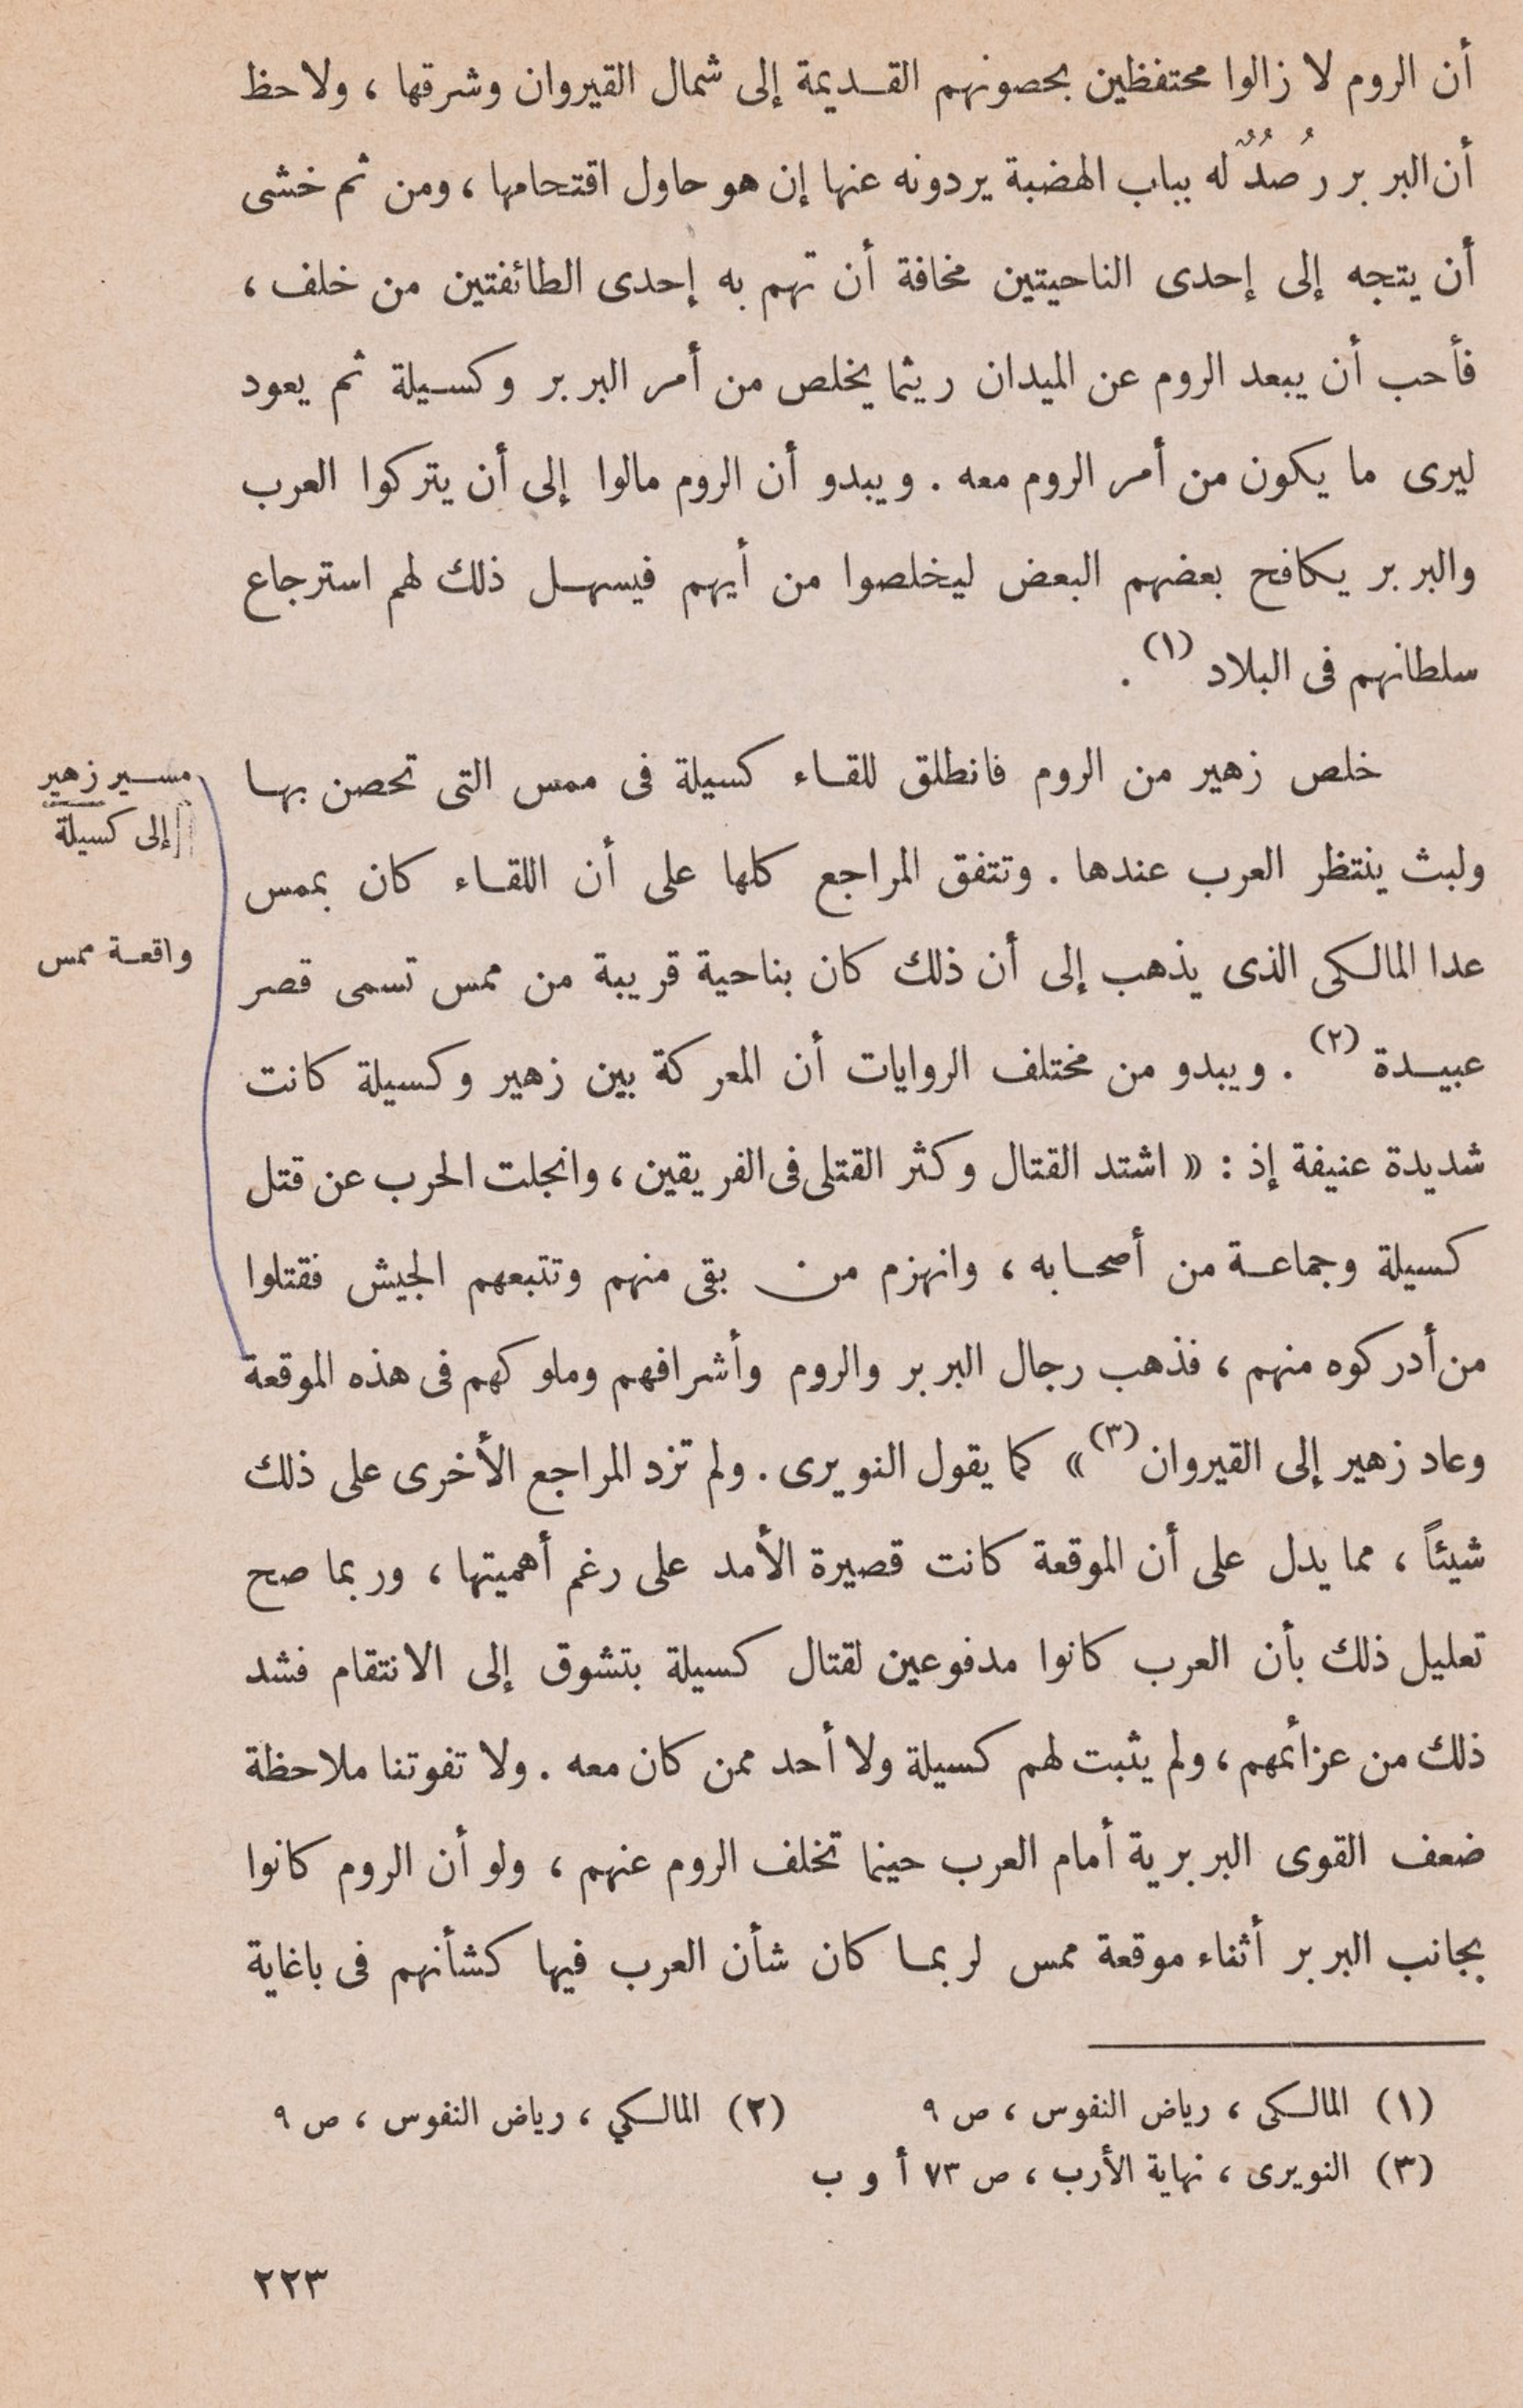 أن الروم لا زالوا محتفظين بحصونهم القديمة إلى شمال القيروان وشرقها ، ولاحظ
أن البربر رُصُدٌ له بباب الهضبة يردونه عنها إن هو حاول اقتحامها ، ومن ثم خشى
أن يتجه إلى إحدى الناحيتين مخافة أن تهم به إحدى الطائفتين من خلف ،
فأحب أن يبعد الروم عن الميدان ريثما يخلص من أمر البربر وكسيلة ثم يعود
ليرى ما يكون من أمر الروم معه . ويبدو أن الروم مالوا إلى أن يتركوا العرب
والبربر يكافح بعضهم البعض ليخلصوا من أيهم فيسهل ذلك لهم استرجاع
سلطانهم فى البلاد (١) .
مسير زهير
إلى كسيلة
خلص زهير من الروم فانطلق للقاء كسيلة فى ممس التى تحصن بها
ولبث ينتظر العرب عندها . وتتفق المراجع كلها على أن اللقاء كان بممس
واقعة ممس
عدا المالكى الذى يذهب إلى أن ذلك كان بناحية قريبة من ممس تسمى قصر
عبيدة (٢) . ويبدو من مختلف الروايات أن المعركة بين زهير وكسيلة كانت
شديدة عنيفة إذ : « اشتد القتال وكثر القتلى فى الفريقين ، وانجلت الحرب عن قتل
كسيلة وجماعة من أصحابه ، وانهزم من بقى منهم وتتبعهم الجيش فقتلوا
من أدركوه منهم ، فذهب رجال البربر والروم وأشرافهم وملوكهم فى هذه الموقعة
وعاد زهير إلى القيروان (٣) » كما يقول النويرى . ولم تزد المراجع الأخرى على ذلك
شيئاً ، مما يدل على أن الموقعة كانت قصيرة الأمد على رغم أهميتها ، وربما صح
تعليل ذلك بأن العرب كانوا مدفوعين لقتال كسيلة بتشوق إلى الانتقام فشد
ذلك من عزائمهم ، ولم يثبت لهم كسيلة ولا أحد ممن كان معه . ولا تفوتنا ملاحظة
ضعف القوى البربرية أمام العرب حينما تخلف الروم عنهم ، ولو أن الروم كانوا
بجانب البربر أثناء موقعة ممس لربما كان شأن العرب فيها كشأنهم فى باغاية
(١) المالكى ، رياض النفوس ، ص ٩ (٢) المالكي ، رياض النفوس ، ص ٩
(٣) النويرى ، نهاية الأرب ، ص ٧٣ أ و ب
٢٢٣